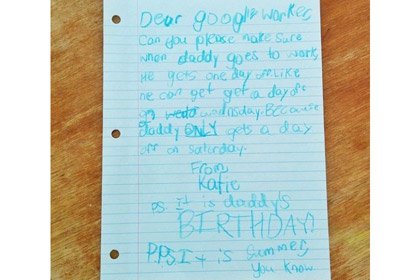 Dear google worker,
Can you please make sure
when daddy goes to work,
He gets one day off. Like
he can get get a day off
on wedo wednsday. Because
daddy ONLY gets a day
off on saturday.
From,
Katie
P.S. It is daddy's
BIRTHDAY!
P.P.S It is summer,
you know.